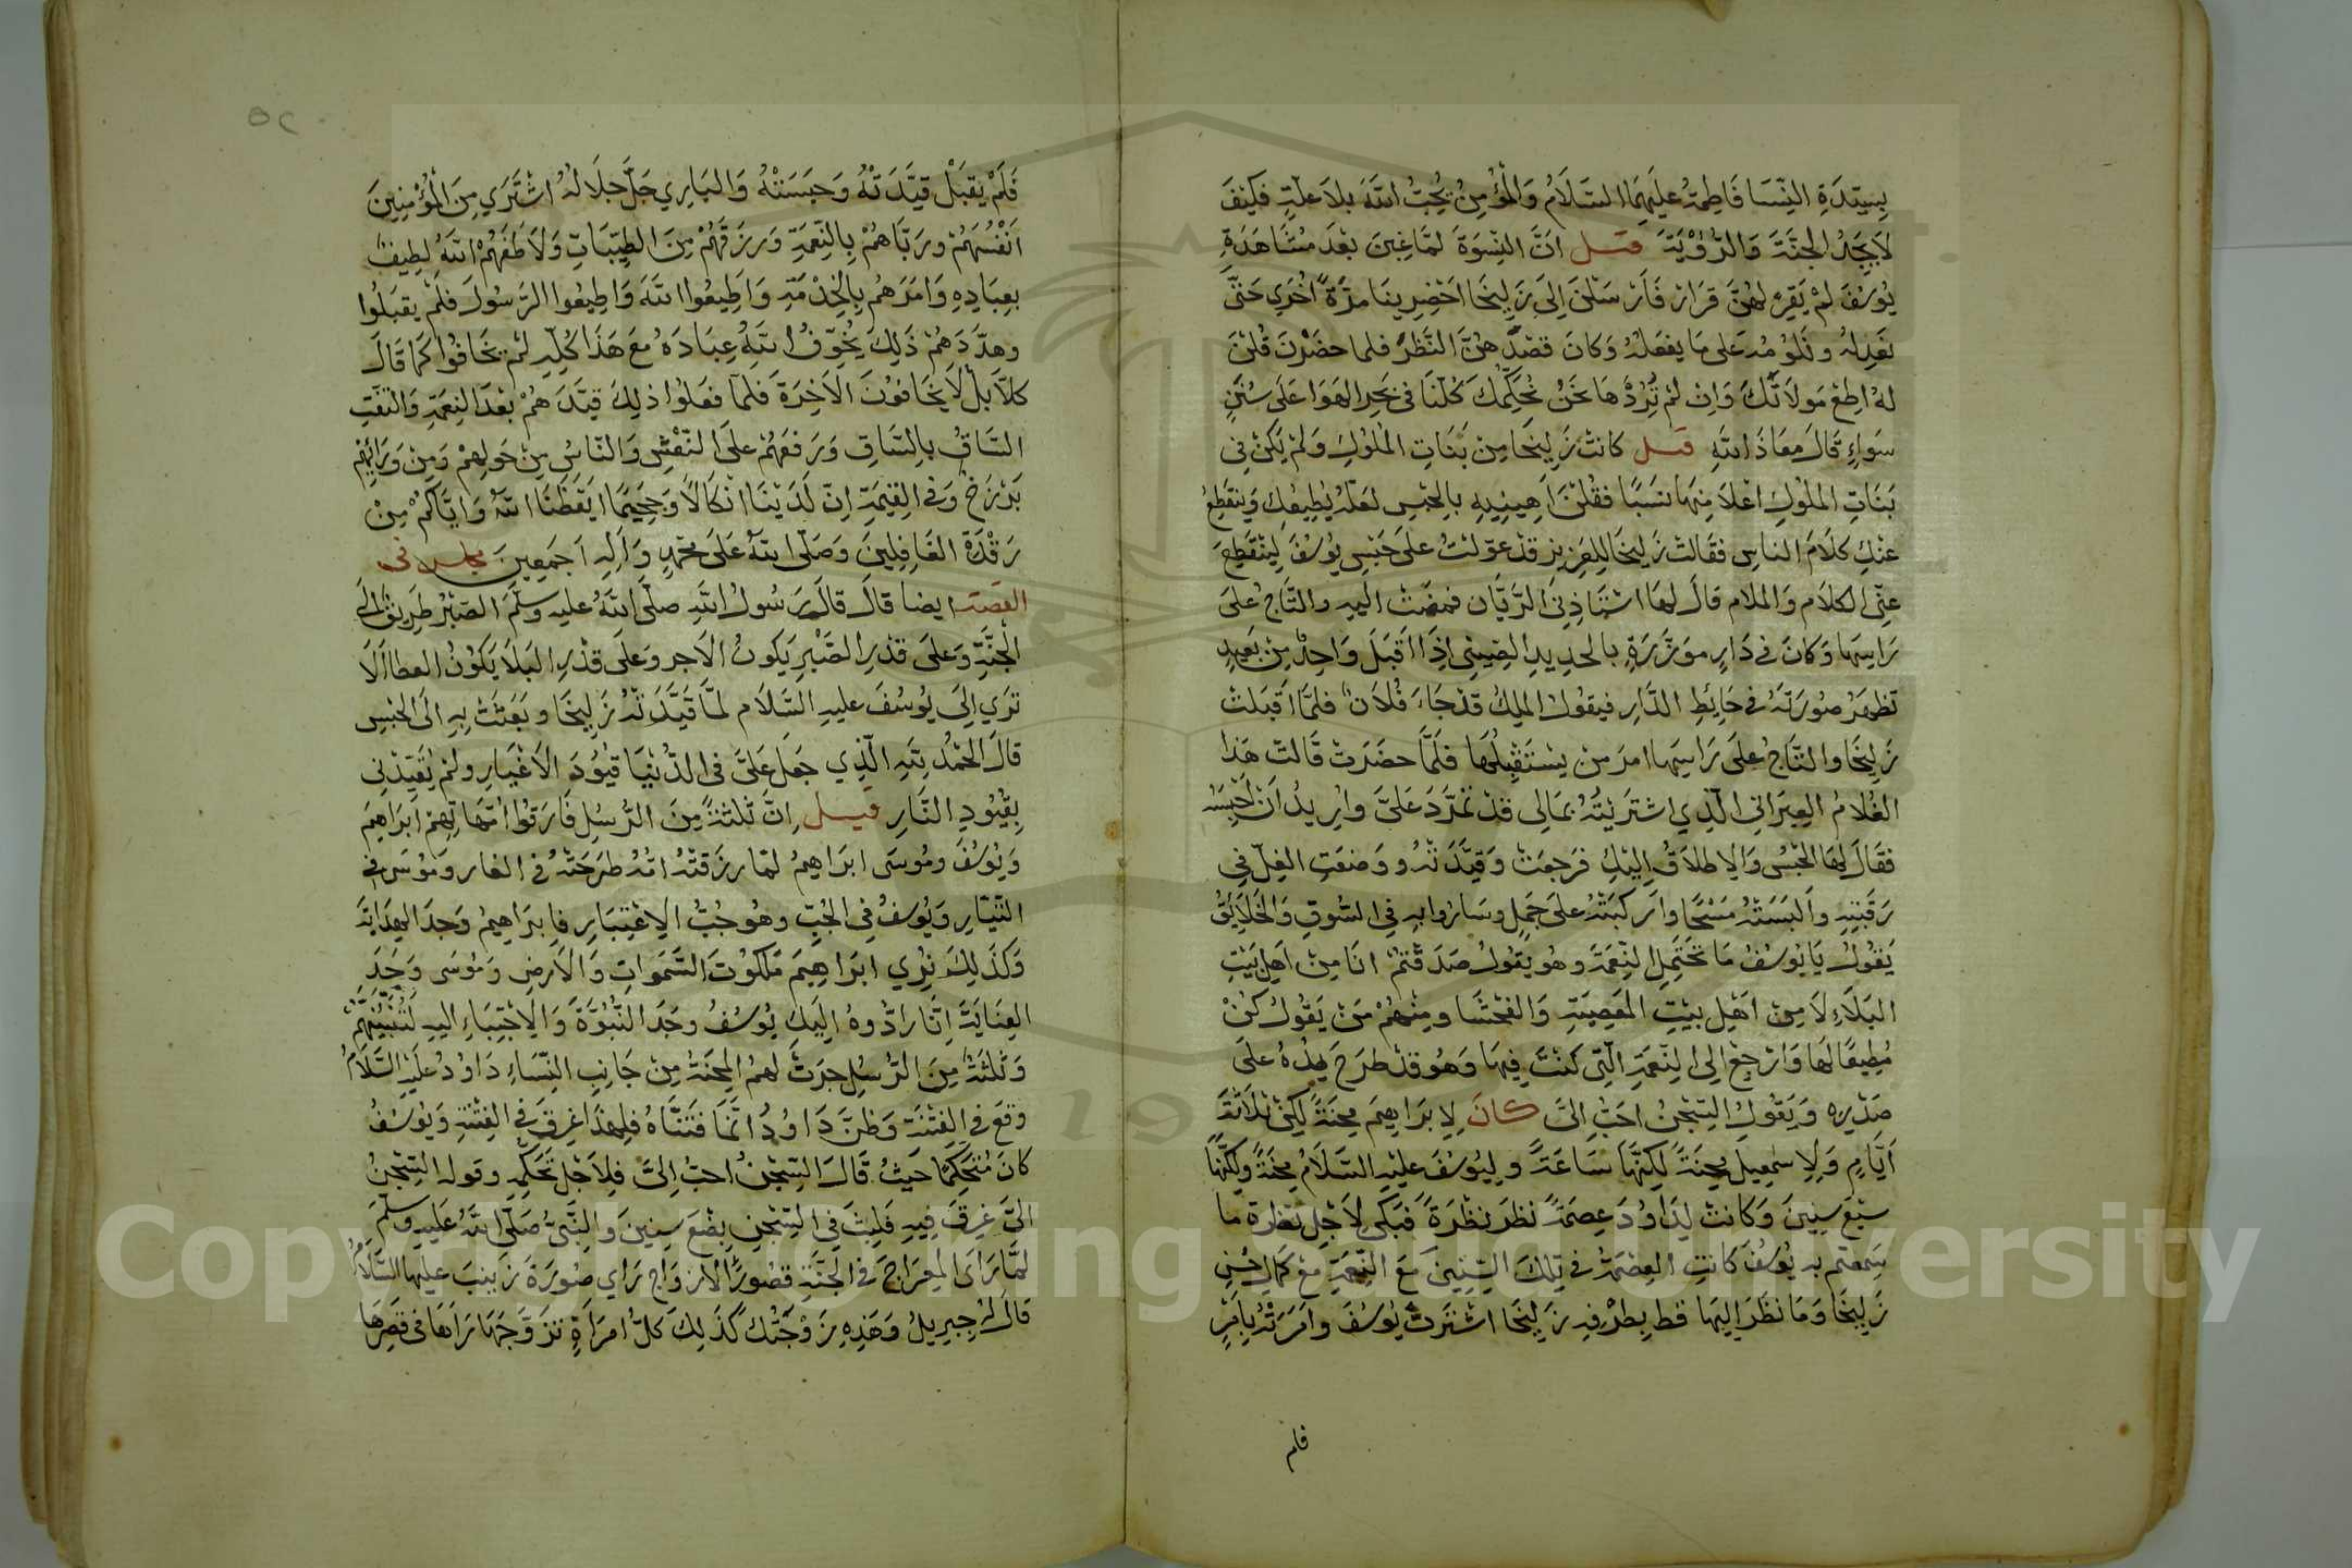 بِسَيِّدَةِ النِّسَا فَاطِمَةُ عَلَيْهِمَا السَّلَامُ وَالْمُؤْمِنُ يُحِبُّ اللَّهَ بِلَا عِلَّةٍ فَكَيْفَ
لَا يَجِدُ الْجَنَّةَ وَالرُّؤْيَةَ قيل اَنَّ النِّسْوَةَ لَمَّا غِبْنَ بَعْدَ مُشَاهَدَةِ
يُوسُفَ لَمْ يَقِرَّ لَهُنَّ قَرَارٌ فَاَرْسَلْنَ اِلَى زَلِيخَا اَحْضِرِينَا مَرَّةً اُخْرَي حَتَّى
نَعْذِلَهُ وَنَلُوْمُهُ عَلَى مَا يَفْعَلُهُ وَكَانَ قَصْدُهُنَّ النَّظَرَ فلما حَضَرْنَ قُلْنَ
لَهُ اَطِعْ مَوْلَاتَكَ وَاِنْ لَمْ تُرِدْهَا نَحْنُ نُحَكِّمُكَ كُلُّنَا فِى بَحْرِ الْهَوَا عَلَى سُنَنٍ
سَوَاءٍ قَالَ مَعَاذَ اللَّهِ قيل كَانَتْ زَلِيخَا مِنْ بَنَاتِ الْمُلُوكِ وَلَمْ يَكُنْ فِى
بَنَاتِ الْمُلُوكِ اَعْلَا مِنْهَا نَسَبًا فَقُلْنَ اَهِينِيهِ بِالْحَبْسِ لَعَلَّهُ يُطِيعُكِ وَيَنْقَطِعُ
عَنْكِ كَلَامُ الناسِ فَقَالَتْ زَلِيخَا لِلْعَزِيزِ قَدْ عَوَّلْتُ عَلَى حَبْسِ يُوسُفَ لِيَنْقَطِعَ
عَنِّى الْكَلَام وَالْمَلَام قَالَ لَهَا اسْتَاذِنِى الرَّيَّان فَمَضَتْ اليه والتَّاجُ عَلَى
رَاسِهَا وَكَانَ فِى دَارٍ مُؤَزَّرَةٍ بِالْحَدِيدِ الصِّينِى اِذَا اَقْبَلَ وَاحِدٌ مِنْ بَعِيدٍ
تَظْهَرُ صُورَتُهُ فِى حَائِطِ الدَّارِ فَيَقُولُ الْمَلِكُ قَدْ جَاءَ فُلَانٌ فَلَمَّا اَقْبَلَتْ
زَلِيخَا والتَّاجُ عَلَى رَاسِهَا امَرَ مَنْ يَسْتَقْبِلُهَا فَلَمَّا حَضَرَتْ قَالَتْ هَذَا
الغُلَامُ الْعِبْرَانِى الَّذِي اشْتَرَيْتُهُ بِمَالِى قَدْ تَمَرَّدَ عَلَىَّ وَاُرِيدُ اَنْ اَحْبِسَهُ
فَقَالَ لَهَا الْحَبْسُ وَالاِطْلَاقُ اِلَيْكِ فَرَجَعَتْ وَقَيَّدَتْهُ وَوَضَعَتِ الْغِلَّ فِى
رَقَبَتِهِ وَاَلْبَسَتْهُ مَسْحًا وَاَرْكَبَتْهُ عَلَى جَمَلٍ وَسَارُوا بِهِ فِى السُّوقِ وَالْخَلَائِقُ
يَقُولُ يَا يُوسُفُ مَا تَحْتَمِلِ النِّعْمَةَ وَهُوَ يَقُولُ صَدَقْتُمْ انَا مِنْ اَهْلِ بَيْتِ
الْبَلَاءِ لَا مِنْ اَهْلِ بَيْتِ الْمَعْصِيَةِ وَالْفَحْشَا وَمِنْهُمْ مَنْ يَقُولُ كُنْ
مُطِيعًا لَهَا وَارْجِعْ اِلَى النِّعْمَةِ الَّتِى كُنْتَ فِيهَا وَهُوَ قَدْ طَرَحَ يَدَهُ عَلَى
صَدْرِهِ وَيَقُولُ السِّجْنُ اَحَبُّ اِلَىَّ كَانَ لِاِبْرَاهِيمَ مِحْنَةٌ لَكِنْ ثَلَاثَةَ
اَيَّامٍ وَلِاِسْمَعِيلَ مِحْنَةً لَكِنَّهَا سَاعَةً وَلِيُوسُفَ عَلَيْهِ السَّلَامُ مِحْنَةً وَلَكِنَّهَا
سَبْعَ سِنِينَ وَكَانَتْ لِدَاوُدَ عِصْمَةٌ نَظَرَ نَظْرَةً فَبَكَى لِاَجْلِ نَظْرَةٍ مَا
سَمِعْتُمْ بِهِ يُوسُفَ كَانَتِ الْعِصْمَةُ فِى تِلْكَ السِّنِينَ مَعَ النِّعْمَةِ مَعَ كَمَالِ حُسْنِ
زَلِيخَا وَمَا نَظَرَ اِلَيْهَا قَط بِطَرْفِهِ زَلِيخَا اشْتَرَتْ يُوسُفَ وَاَمَرَتْهُ بِاَمْرٍ
فلم
٥٢
فَلَمْ يَقْبَلْ قَيَّدَتْهُ وَحَبَسَتْهُ وَالْبَارِي جَلَّ جَلَالُهُ اشْتَرَي مِنَ الْمُؤْمِنِينَ
اَنْفُسَهُمْ وَرَبَّاهُمْ بِالنِّعْمَةِ وَرَزَقَهُمْ مِنَ الطَّيِّبَاتِ وَلَاطَفَهُمْ اللَّهُ لَطِيفٌ
بِعِبَادِهِ وَاَمَرَهُمْ بِالْخِدْمَةِ وَاَطِيعُوا اللَّهَ وَاَطِيعُوا الرَّسُولَ فَلَمْ يَقْبَلُوا
وَهَدَّدَهُمْ ذَلِكَ يُخَوِّفُ اللَّهُ عِبَادَهُ مَعَ هَذَا كُلِّهِ لَمْ يَخَافُوا كَمَا قَالَ
كَلَّا بَلْ لَا يَخَافُونَ الْآخِرَةَ فَلَمَّا فَعَلُوا ذَلِكَ قَيَّدَهُمْ بَعْدَ النِّعْمَةِ وَالْتَفَّتِ
السَّاقُ بِالسَّاقِ وَرَفَعَهُمْ عَلَى النَّعْشِ وَالنَّاسُ مِنْ حَوْلِهِمْ وَمِنْ وَرَائِهِمْ
بَرْزَخٌ وَفِى الْقِيَمَةِ اِنَّ لَدَيْنَا اَنْكَالًا وَجَحِيمًا اَيْقَظَنَا اللَّهُ وَاِيَّاكُمْ مِنْ
رَقْدَةِ الْغَافِلِينَ وَصَلَّى اللَّهُ عَلَى مُحَمَّدٍ وَآلِهِ اَجْمَعِينَ مجلس فى
القصة ايضا قَالَ قَالَ رَسُولُ اللَّهِ صَلَّى اللَّهُ عَلَيْهِ وَسَلَّمَ الصَّبْرُ طَرِيقٌ اِلَى
الْجَنَّةِ وَعَلَى قَدْرِ الصَّبْرِ يَكُونُ الْاَجْر وَعَلَى قَدْرِ الْبَلَا يَكُونُ الْعَطَا اَلَا
تَرَي اِلَى يُوسُفَ عَلَيْهِ السَّلَام لَمَّا قَيَّدَتْهُ زَلِيخَا وَبَعَثَتْ بِهِ اِلَى الْحَبْسِ
قَالَ الْحَمْدُ لِلَّهِ الَّذِي جَعَلَ عَلَىَّ فِى الدُّنْيَا قُيُودَ الْاَغْيَارِ وَلَمْ يُقَيِّدْنِى
بِقُيُودِ النَّارِ قيل اِنَّ ثَلَثَةً مِنَ الرُّسُلِ فَارَقُوا اُمَّهَاتِهِمْ اِبْرَاهِيمَ
وَيُوسُفَ وَمُوسَى اِبْرَاهِيمُ لَمَّا رَزَقَتْهُ اُمُّهُ طَرَحَتْهُ فِى الْغَارِ وَمُوسَى فى
التَّيَّارِ وَيُوسُفُ فِى الْجُبِّ وَهُوَ جُبُّ الْاِعْتِبَارِ فَاِبْرَاهِيمُ وَجَدَ الْهِدَايَةَ
وَكَذَلِكَ نُرِي اِبْرَاهِيمَ مَلَكُوتَ السَّمَوَاتِ وَالْاَرْضِ وَمُوسَى وَجَدَ
الْعِنَايَةَ اِنَّا رَادُّوهُ اِلَيْكَ يُوسُفُ وَجَدَ النُّبُوَّةَ وَالْاِجْتِبَاءِ اِلَيْهِ لَتُنَبِّئَنَّهُمْ
وَثَلَثَةٌ مِنَ الرُّسُلِ جَرَتْ لَهُمُ الْمِحْنَةُ مِنْ جَانِبِ النِّسَاءِ دَاوُدُ عَلَيْهِ السَّلَامُ
وَقَعَ فِى الْفِتْنَةِ وَظَنَّ دَاوُدُ اَنَّمَا فَتَنَّاهُ فَلِهَذَا غَرِقَ فِى الْفِتْنَةِ وَيُوسُفُ
كَانَ مُتَحَكِّمًا حَيْثُ قَالَ السِّجْنُ احَبُّ اِلَىَّ فَلِاَجْلِ تَحَكُّمِهِ وَقَوْلِهِ السِّجْنُ
اِلَىَّ غَرِقَ فِيهِ فَلَبِثَ فِى السِّجْنِ بِضْعَ سِنِينَ وَالنَّبِىُّ صَلَّى اللَّهُ عَلَيْهِ وَسَلَّمَ
لَمَّا رَاَى الْمِعْرَاجَ فِى الْجَنَّةِ قُصُورًا لِاَزْوَاج رَاي صُورَةَ زَيْنَبَ عَلَيْهَا السَّلَامُ
قَالَ لَهُ جِبْرِيلُ وَهَذِهِ زَوْجَتُكَ كَذَلِكَ كُلُّ امْرَاَةٍ تَزَوَّجَهَا رَاهَا فِى قَصْرِهَا
Copyright © King Saud University